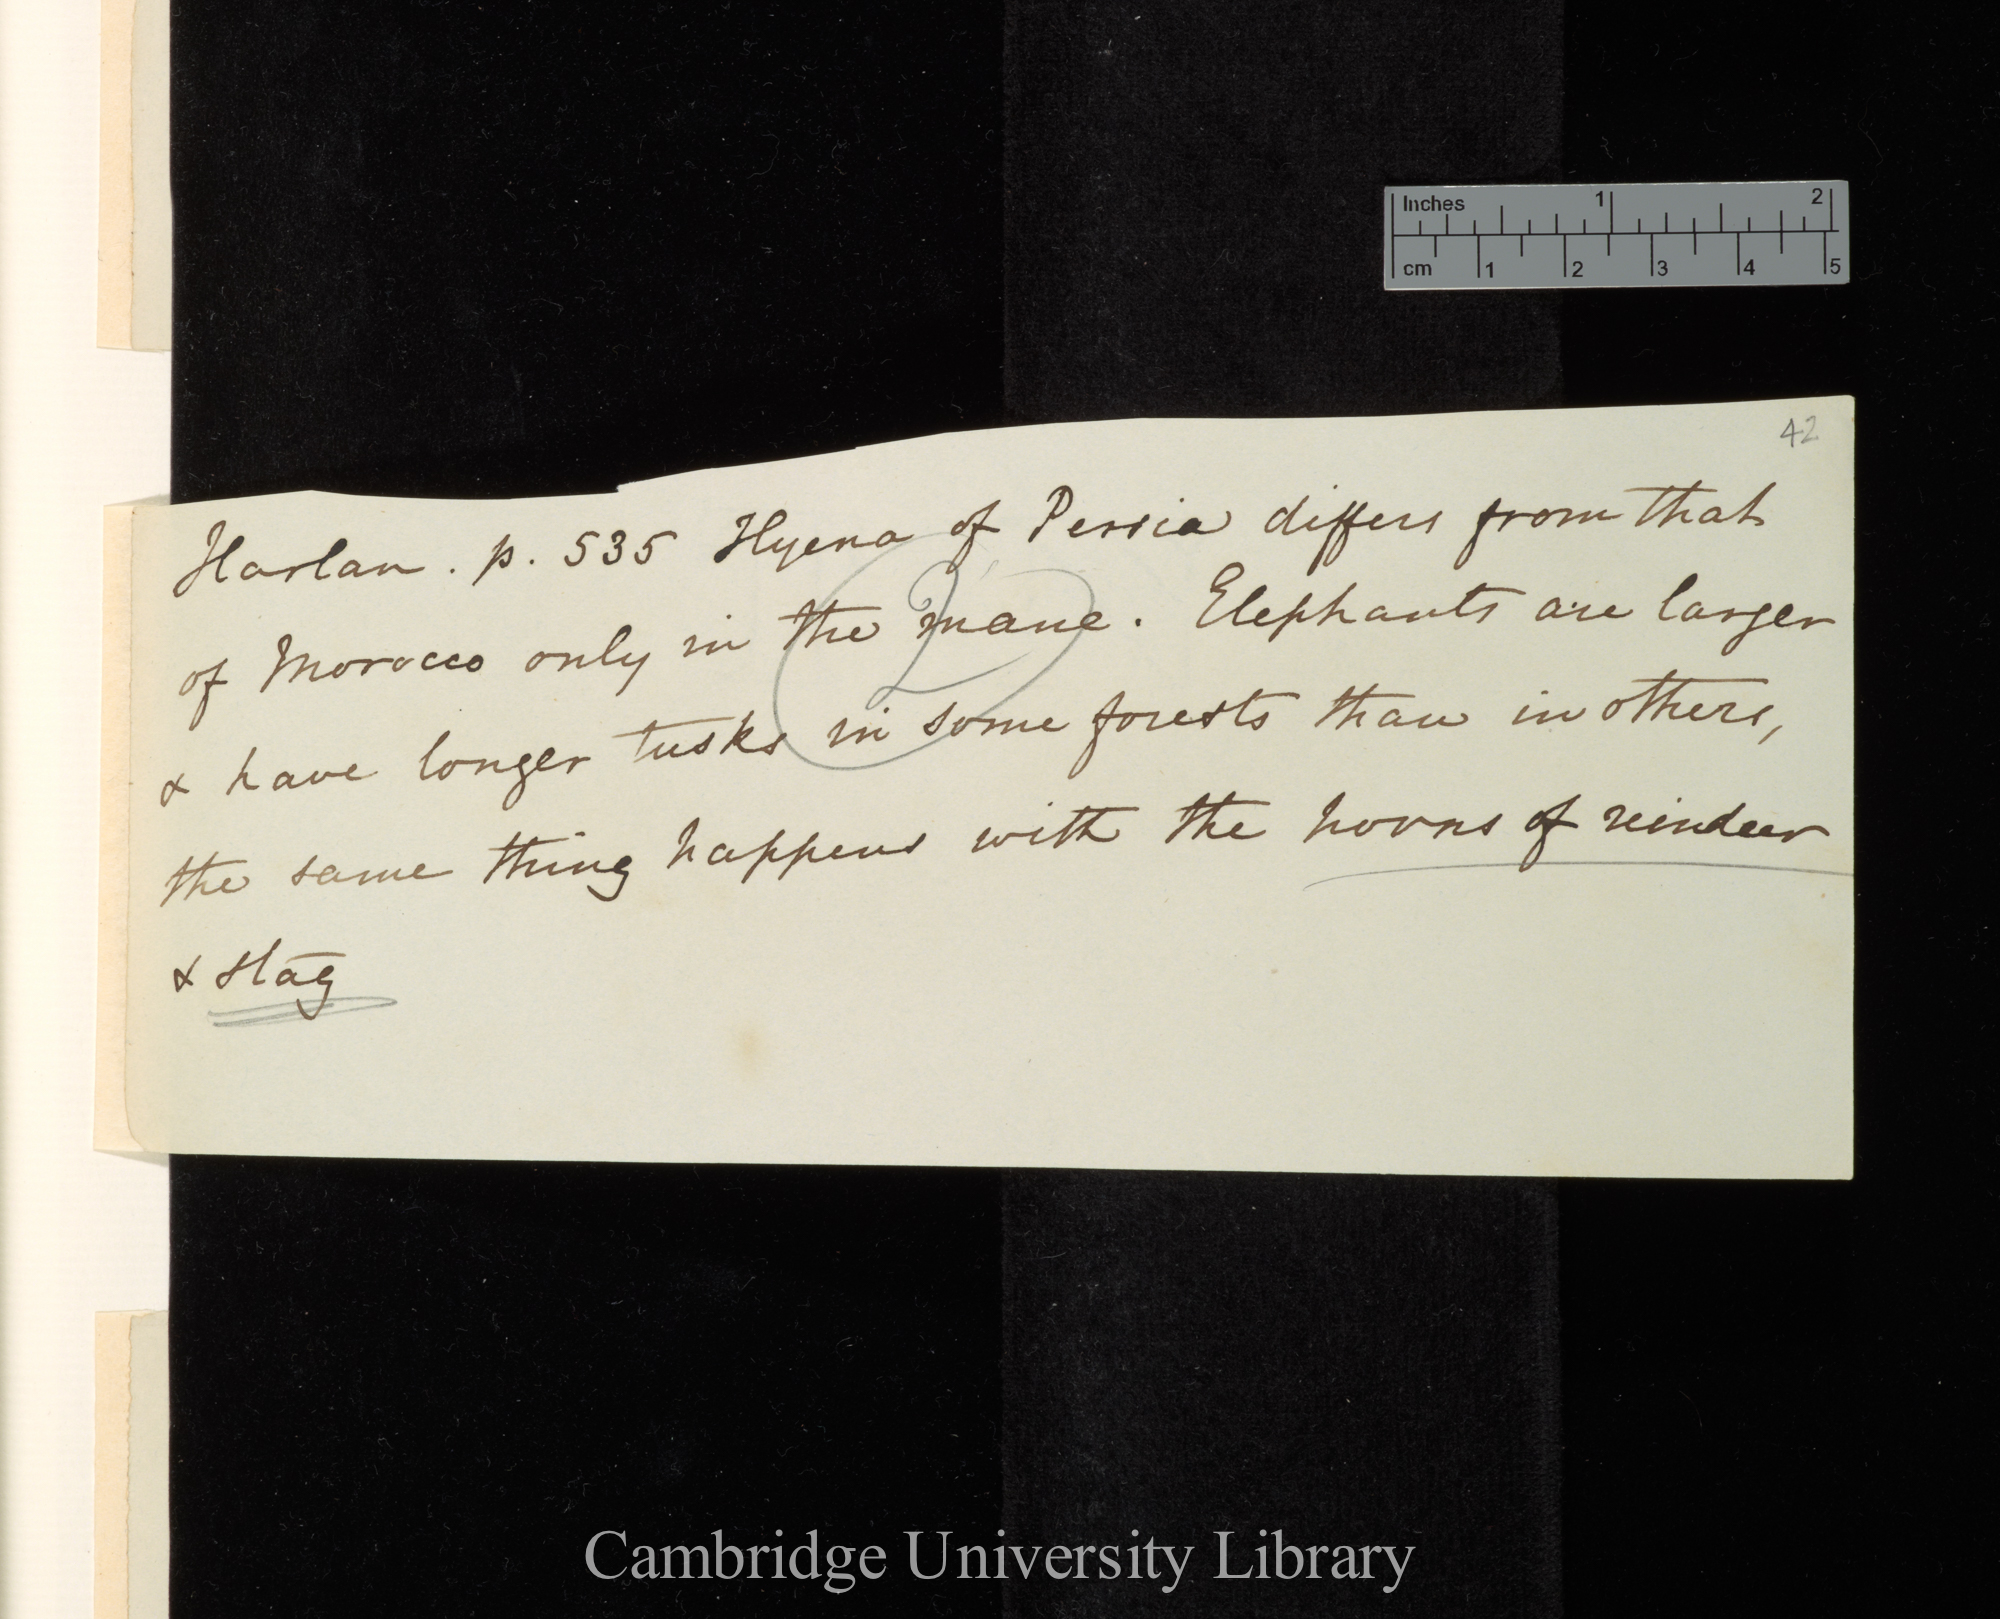 Inches 1 2
cm 1 2 3 4 5
42
Harlan . p. 535 Hyena of Persia differs from that
of Morocco only in the mane. Elephants are larger
& have longer tusks in some forests than in others,
the same thing happens with the horns of reindeer
& stag
2
Cambridge University Library